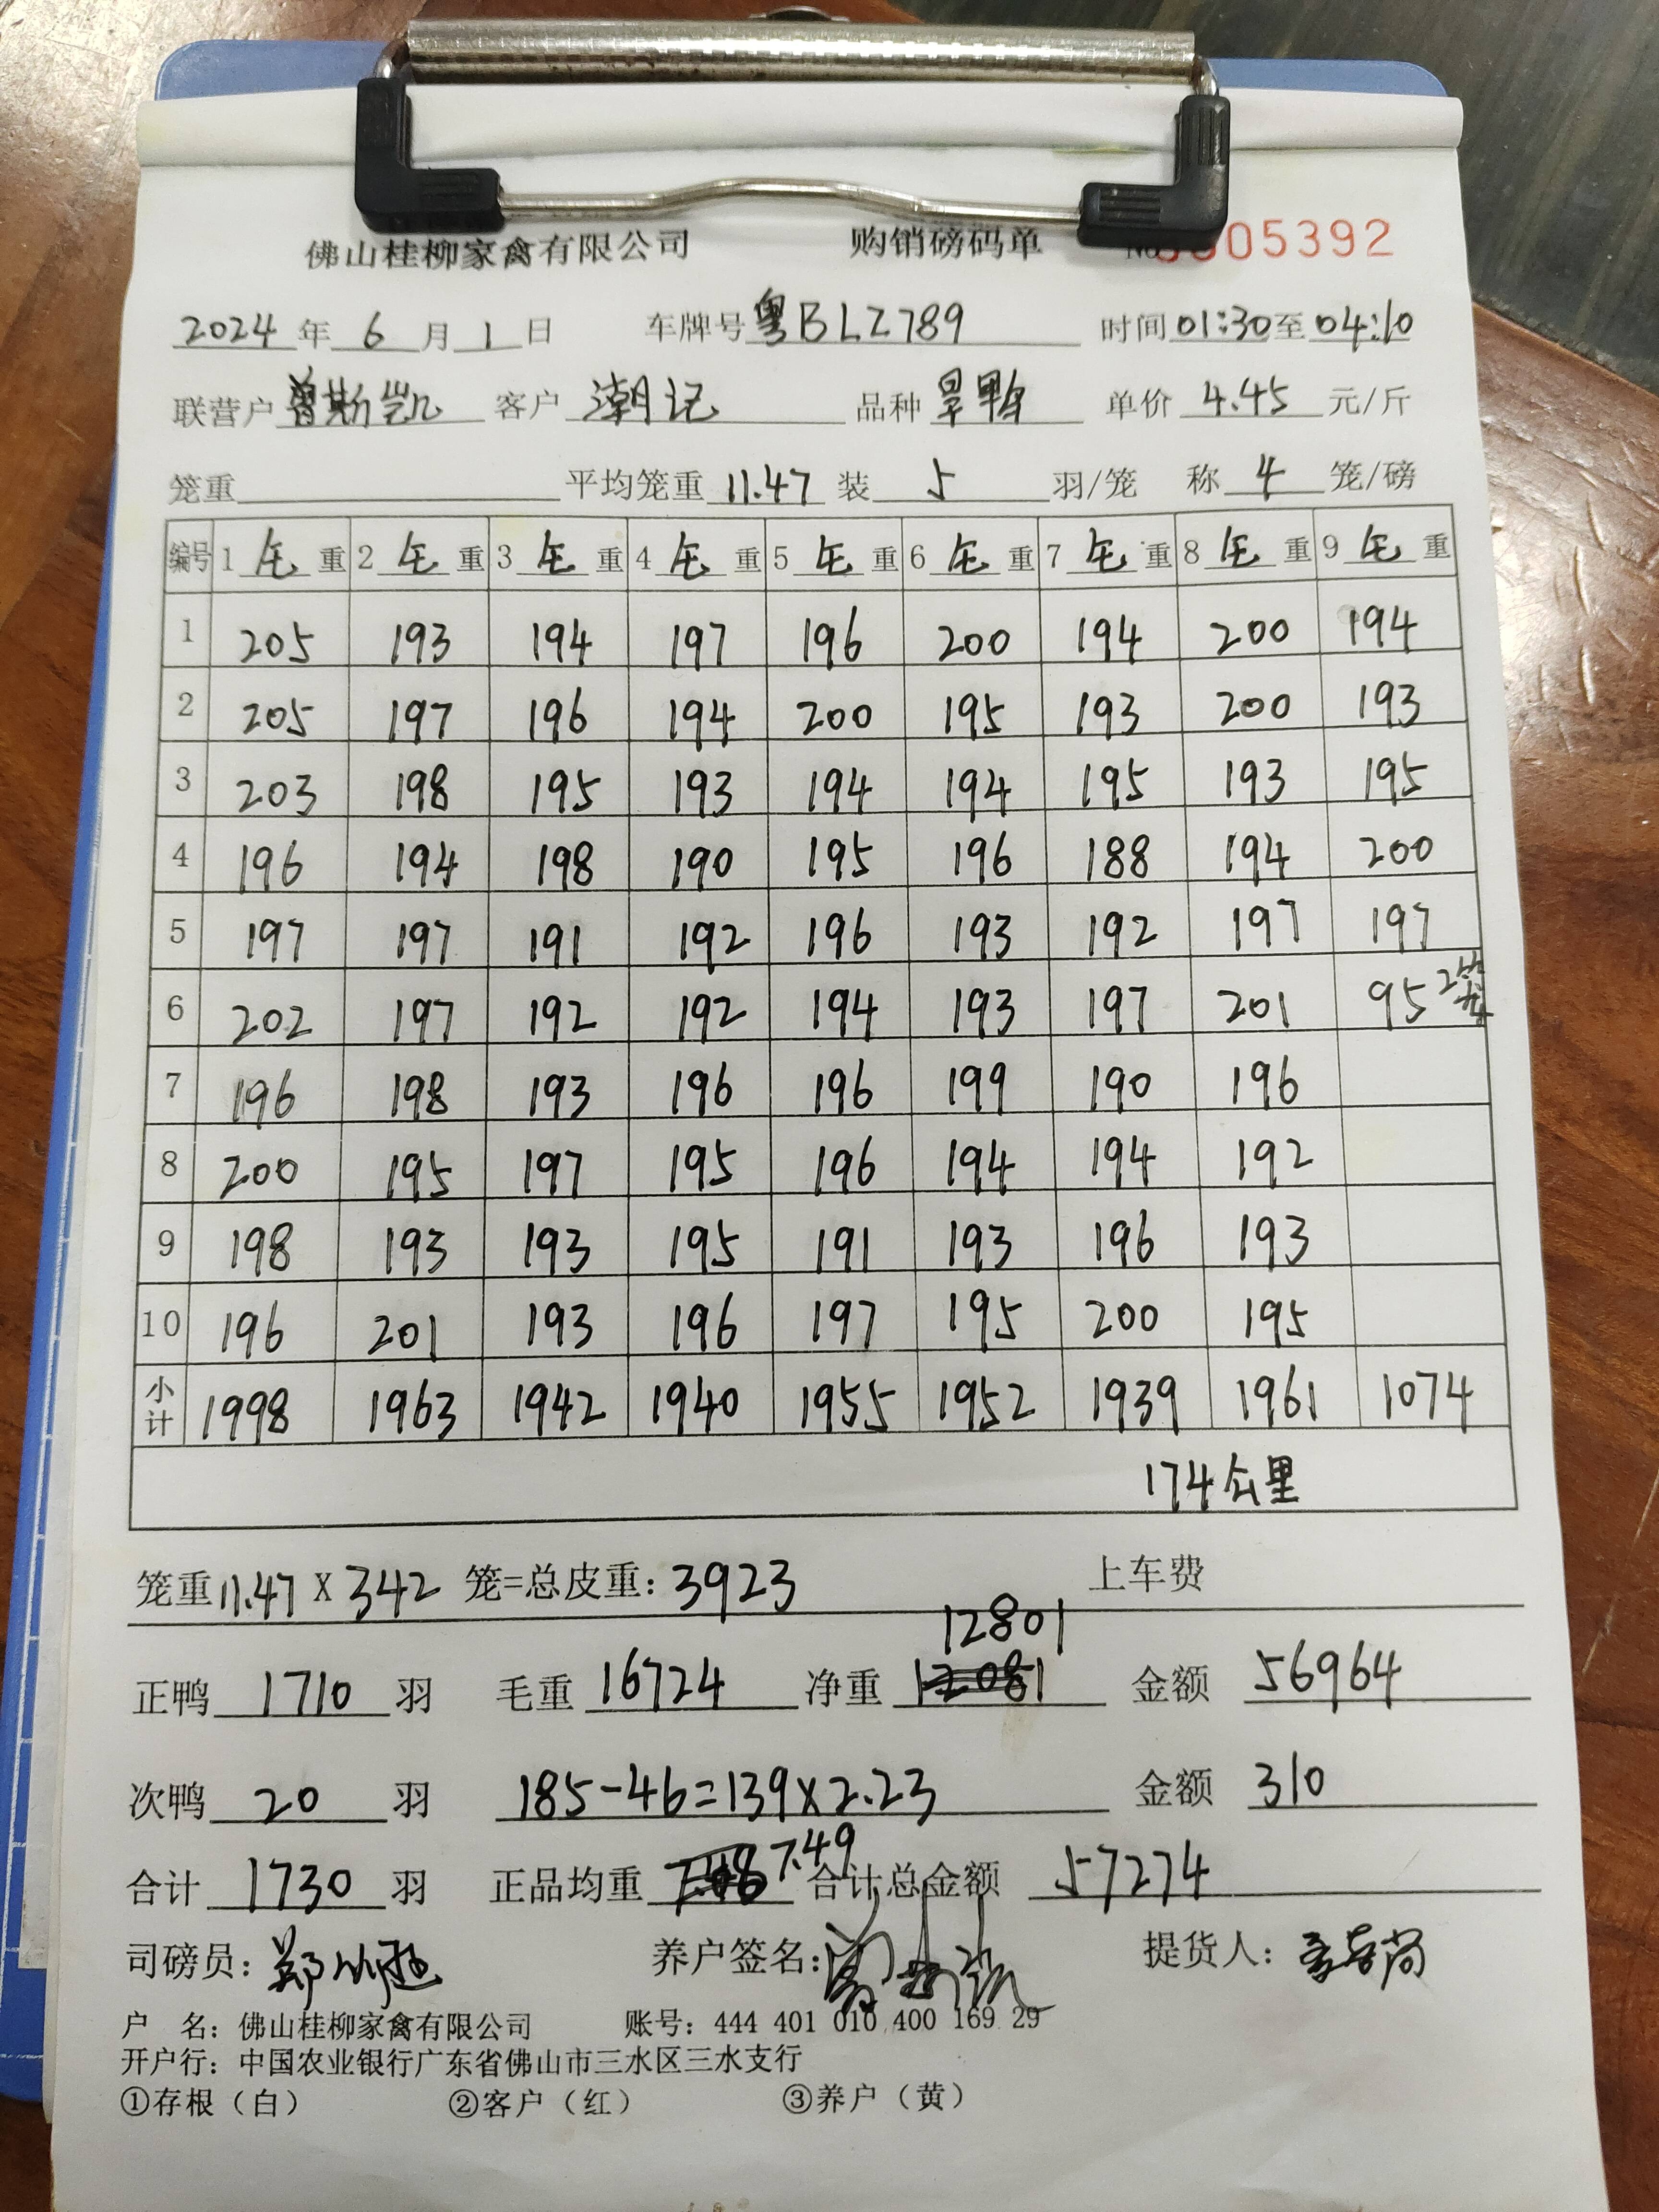 佛山桂柳家禽有限公司 购销磅码单 No 05392
2024年 6 月 1 日 车牌号 粤BLZ789 时间 01:30 至 04:10
联营户 曾斯凯 客户 潮记 品种 旱鸭 单价 4.45 元/斤
笼重 平均笼重 11.47 装 5 羽/笼 称 4 笼/磅
编号 1 毛 重 2 毛 重 3 毛 重 4 毛 重 5 毛 重 6 毛 重 7 毛 重 8 毛 重 9 毛 重
1 205 193 194 197 196 200 194 200 194
2 205 197 196 194 200 195 193 200 193
3 203 198 195 193 194 194 195 193 195
4 196 194 198 190 195 196 188 194 200
5 197 197 191 192 196 193 192 197 197
6 202 197 192 192 194 193 197 201 95 2笼
7 196 198 193 196 196 199 190 196
8 200 195 197 195 196 194 194 192
9 198 193 193 195 191 193 196 193
10 196 201 193 196 197 195 200 195
小计 1998 1963 1942 1940 1955 1952 1939 1961 1074
174公里
笼重 11.47 X 342 笼=总皮重: 3923 上车费
12801
正鸭 1710 羽 毛重 16724 净重 12081 金额 56964
次鸭 20 羽 185-46=139×2.23 金额 310
合计 1730 羽 正品均重 7.49 合计总金额 57274
司磅员: 养户签名: 提货人:
户 名: 佛山桂柳家禽有限公司 账号: 444 401 010 400 169 29
开户行: 中国农业银行广东省佛山市三水区三水支行
①存根（白） ②客户（红） ③养户（黄）